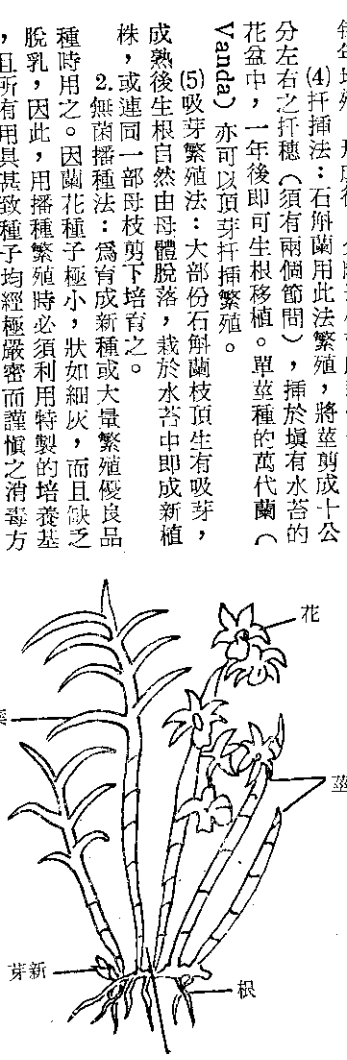 (4)扦插法：石斛蘭用此法繁殖，將莖剪成十公
分左右之扦穗（須有兩個節間），插於塡有水苔的
花盆中，一年後即可生根移植。單莖種的萬代蘭（
Vanda）亦可以頂芽扦插繁殖。
(5)吸芽繁殖法：大部份石斛蘭枝頂生有吸芽，
成熟後生根自然由母體脫落，栽於水苔中即成新植
株，或連同一部母枝剪下培育之。
2.無菌播種法：爲育成新種或大量繁殖優良品
種時用之。因蘭花種子極小，狀如細灰，而且缺乏
脫乳，因此，用播種繁殖時必須利用特製的培養基
，且所有用具甚致種子均經極嚴密而謹愼之消毒方
花
莖
芽新
根